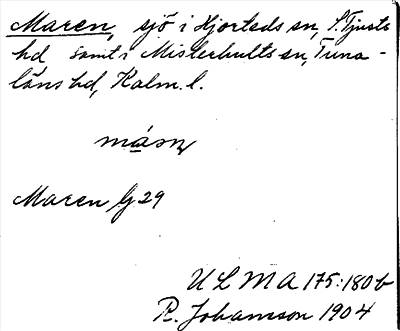 Maren, sjö i Hjorteds sn, S. Tjusts
hd samt i Misterhults sn, Tuna-
läns hd, Kalm. l.
màsṇ
Maren G 29
ULMA 175:180 b
R. Johansson 1904